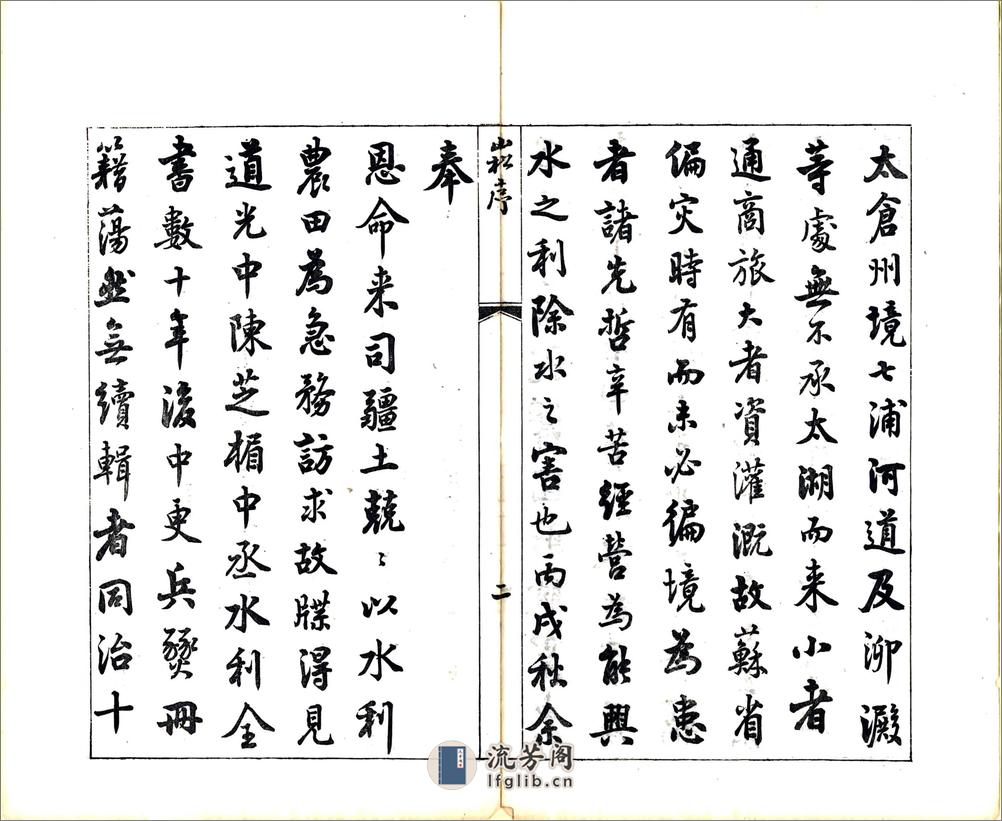 太倉州境七浦河道及泖澱
等處無不承太湖而来小者
通商旅大者資灌溉故蘇省
偏灾時有而未必徧境為患
者諸先哲辛苦經營為能興
水之利除水之害也丙戌秋余
崧序
二
奉
恩命来司疆土兢〻以水利
農田為急務訪求故牒得見
道光中陳芝楣中丞水利全
書數十年後中更兵燹冊
籍蕩然無續輯者同治十
流芳阁
lfglib.cn